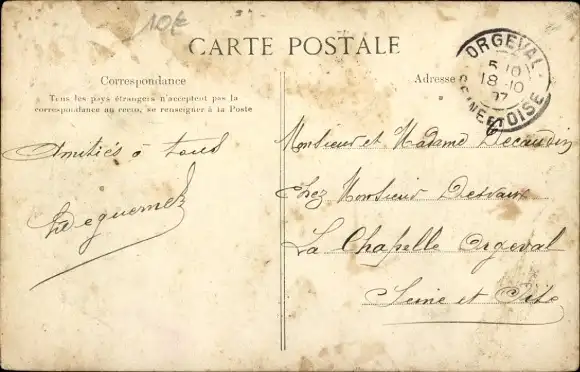 10€
CARTE POSTALE
Correspondance
Tous les pays étrangers n'acceptent pas la
correspondance au recto, se renseigner à la Poste
Amitiés à tous
Adresse
ORGEVAL
5-10
18-10
07
SEINE ET OISE
Monsieur et Madame Decaudin
Chez Monsieur Desvaux
La Chapelle Orgeval
Seine et Oise